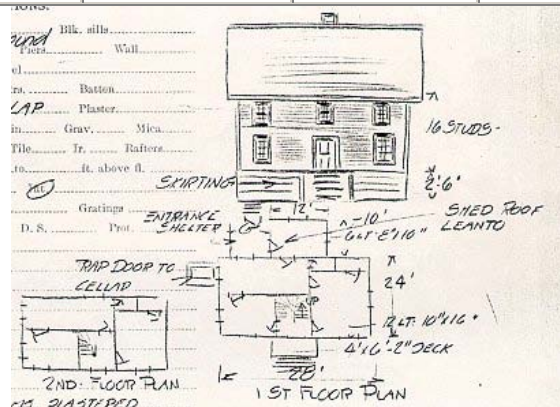 IONS:
Blk. sills
ound
Piers Wall
el
rs. Batten
LAP Plaster
in Grav. Mica
Tile Ir. Rafters
to ft. above fl.
Int.
Gratings
D. S. Prot.
16 STUDS-
2'-6"
SKIRTING
12'
ENTRANCE
SHELTER
10'
6 LT-8"X10"
SHED ROOF
LEANTO
TRAP DOOR TO
CELLAR
UP
24'
12 LT-10"X16"
4'X6'-2" DECK
28'
2ND. FLOOR PLAN
1ST FLOOR PLAN
PLASTERED